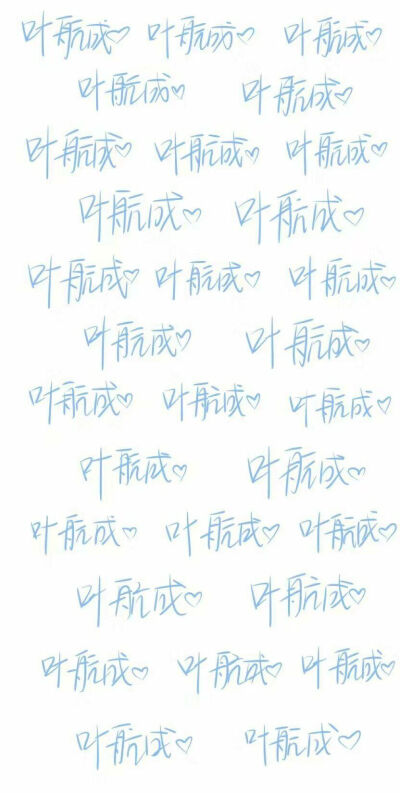 叶航成♡ 叶航成♡ 叶航成♡
叶航成♡ 叶航成♡
叶航成♡ 叶航成♡ 叶航成♡
叶航成♡ 叶航成♡
叶航成♡ 叶航成♡ 叶航成♡
叶航成♡ 叶航成♡
叶航成♡ 叶航成♡ 叶航成♡
叶航成♡ 叶航成♡
叶航成♡ 叶航成♡ 叶航成♡
叶航成♡ 叶航成♡
叶航成♡ 叶航成♡ 叶航成♡
叶航成♡ 叶航成♡